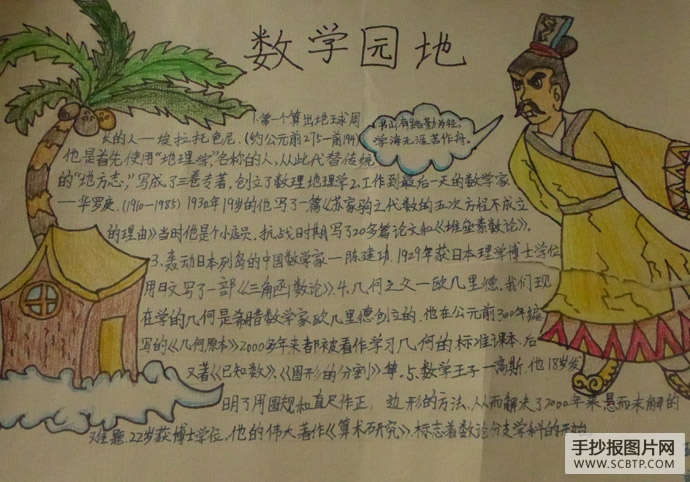 数学园地
1.第一个算出地球周
长的人——埃拉托色尼.(约公元前275—前194)
他是首先使用“地理学”名称的人,从此代替传统
的“地方志,”写成了三卷专著,创立了数理地理学2、工作到最后一天的数学家
—华罗庚.(1910—1985) 1930年19岁的他写了一篇《苏家驹之代数的五次方程不成立
的理由》当时他是个小店员,抗战时期写了20多篇论文和《堆垒素数论》.
3、轰动日本列岛的中国数学家—陈建功,1929年获日本理学博士学位
用日文写了一部《三角函数论》.4、几何之父—欧几里德.我们现
在学的几何是希腊数学家欧几里德创立的,他在公元前300年编
写的《几何原本》2000多年来都被看作学习几何的标准课本,后
又著《已知数》、《图形的分割》等.5、数学王子—高斯.他18岁发
明了用圆规和直尺作正, 边形的方法,从而解决了2000年来悬而未解的
难题.22岁获博士学位.他的伟大著作《算术研究》,标志着数论分支学科的开始.
书山有路勤为径,
学海无涯苦作舟。
手抄报图片网
WWW.SCBTP.COM